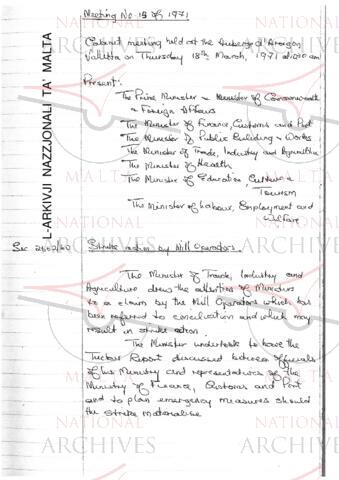 Meeting No 15 of 1971
Cabinet meeting held at the Auberge d'Aragon,
Valletta on Thursday 18th March, 1971 at
Present:
The Prime Minister & Minister of Commonwealth
& Foreign Affairs
The Minister of Finance, Customs and Port
The Minister of Public Building & Works
The Minister of Trade, Industry and Agriculture
The Minister of Health
The Minister of Education, Culture &
Tourism
The Minister of Labour, Employment and
Welfare
Strike action by Mill Operators.
The Minister of Trade, Industry and
Agriculture drew the attention of Ministers
to a claim by the Mill Operators which has
been referred to conciliation and which may
result in strike action.
The Minister undertook to have the
Report discussed between officials
of his Ministry and representatives of the
Ministry of Finance, Customs and Port
and to plan emergency measures should
the strike materialise
L-ARKIVJI NAZZJONALI TA' MALTA
NATIONAL
ARCHIVES
MALTA